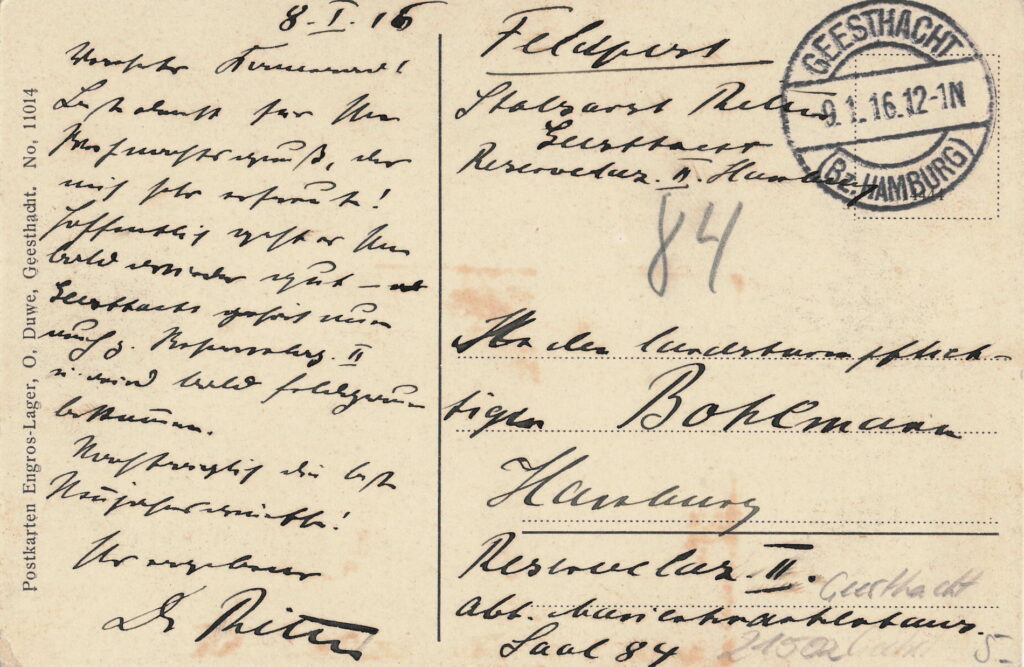 8.I.16
Besten Dank für Ihren
Weihnachtsgruß, der
mich sehr erfreut!
Hoffentlich geht es Ihnen
bald wieder gut –
Geesthacht gehört nun
auch z. Reservelaz. II
u. wird bald feldgrau
bekommen.
Nachträglich die besten
Neujahrswünsche!
Ihr ergebener
Dr
Feldpost
Stabsarzt
Geesthacht
Reservelaz. II. Hamburg
GEESTHACHT
9.1.16.12-1N
(Bz. HAMBURG)
84
An den landsturmpflich-
tigen Bohlmann
Hamburg
Reservelaz. II.
Abt. Marienkrankenhaus.
Saal 84
Geesthacht
5-
Postkarten Engros-Lager, O. Duwe, Geesthacht. No. 11014